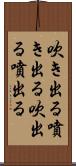 吹き出る噴
き出る吹出
る噴出る